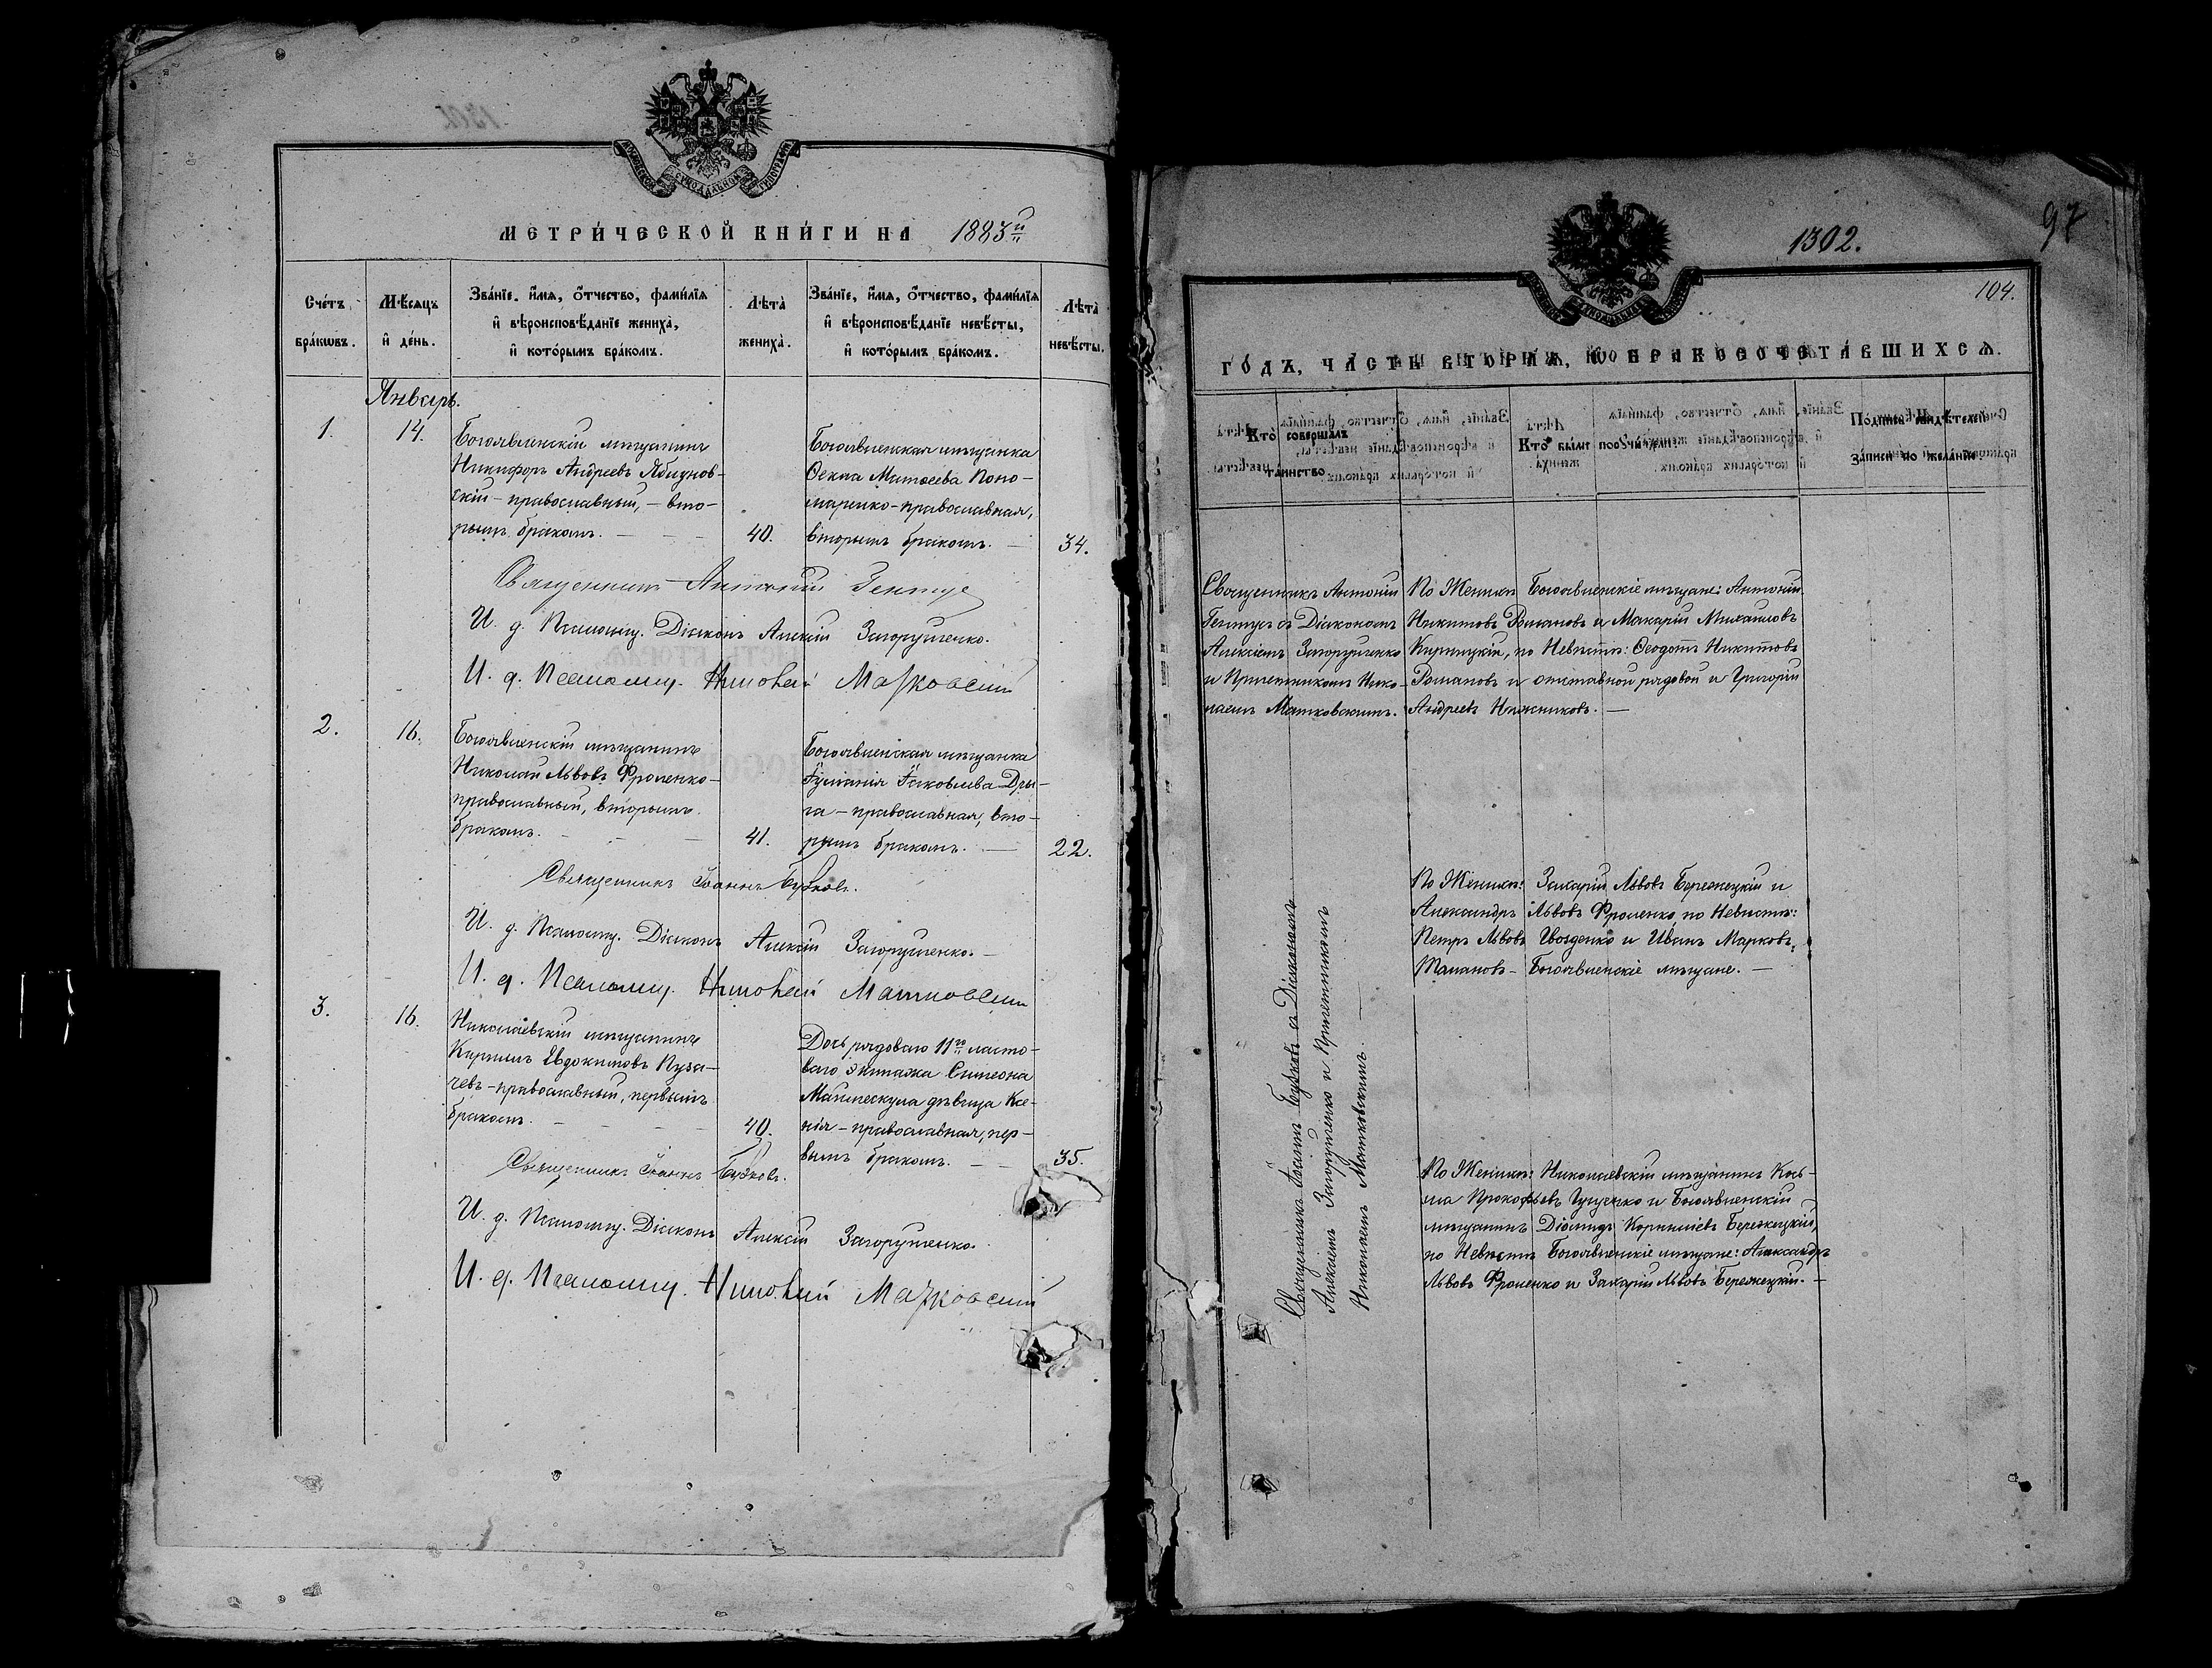 МОСКОВСКОЙ СѴНОДАЛЬНОЙ ТИПОГРАФІИ
МЕТРИ́ЧЕСКОЙ КНИ́ГИ НА 1883й
Сче́тъ бра́кѡвъ.
Мѣ́сяцъ и҆ де́нь.
Зва́нїе, и҆́мя, ѻ҆́тчество, фамѝлїя
и҆ вѣроисповѣ́данїе женихà,
и҆ кото́рымъ бра́комъ.
Лѣ́та женихà.
Зва́нїе, и҆́мя, ѻ҆́тчество, фамѝлїя
и҆ вѣроисповѣ́данїе невѣ́сты,
и҆ кото́рымъ бра́комъ.
Лѣ́та невѣ́сты.
Январь.
1.
14.
Богоявленскій мѣщанинъ
Никифоръ Андреевъ
скій - православный, - вто-
рымъ бракомъ.
40.
Богоявленская мѣщанка
Ѳекла Матѳеева Поно-
маренко - православная,
вторымъ бракомъ.
34.
Священникъ Антоній Гентус
И. д. Псаломщ. Діаконъ Алексій Загорульченко.
И. д. Псаломщ. Николай Матковскій
2.
16.
Богоявленскій мѣщанинъ
Николай Львовъ Фроленко -
православный, вторымъ
бракомъ.
41.
Богоявленская мѣщанка
Іуліанія Іаковлева Дры-
га - православная, вто-
рымъ бракомъ.
22.
Священникъ Іоаннъ
И. д. Псаломщ. Діаконъ Алексій
И. д. Псаломщ. Николай Матковскій
3.
16.
Николаевскій мѣщанинъ
Кириллъ Евдокимовъ Пуза-
чевъ - православный, первымъ
бракомъ.
40.
Дочь рядоваго 11го ласто-
ваго экипажа Симеона
дѣвица Ксе-
нія - православная, пер-
вымъ бракомъ.
35.
Священникъ Іоаннъ
И. д. Псаломщ. Діаконъ Алексій
И. д. Псаломщ. Николай Матковскій
1302.
97
104.
ГО́ДЪ, ЧА́СТЬ ВТОРА́Я, Ѡ БРАКОСОЧЕТА́ВШИХСЯ.
Кто̀ соверша́лъ
та́инство.
Кто̀ бы́ли поручи́тели.
По́дпись свидѣ́телей
за́писи по жела́нію.
Священникъ Антоній
Гентусъ съ Діакономъ
Алексіемъ
и Причетникомъ Нико-
лаемъ Матковскимъ.
По Женихѣ Богоявленскіе мѣщане: Антоній
Никитовъ Романовъ и Макарій Михаиловъ
по Невѣстѣ: Ѳеодотъ Никитовъ
Романовъ и отставной рядовой и Григорій
Андреевъ
Священникъ Іоаннъ съ Діакономъ
Алексіемъ и Причетникомъ
Николаемъ Матковскимъ.
По Женихѣ: Захарій Львовъ Бережецкій и
Александръ Львовъ Фроленко, по Невѣстѣ:
Петръ Львовъ Гвозденко и Иванъ Марковъ
- Богоявленскіе мѣщане.
По Женихѣ: Николаевскій мѣщанинъ Козь-
ма Прокофьевъ и Богоявленскій
мѣщанинъ Діомидъ Корниліевъ Бережецкій,
по Невѣстѣ Богоявленскіе мѣщане: Александръ
Львовъ Фроленко и Захарій Львовъ Бережецкій.